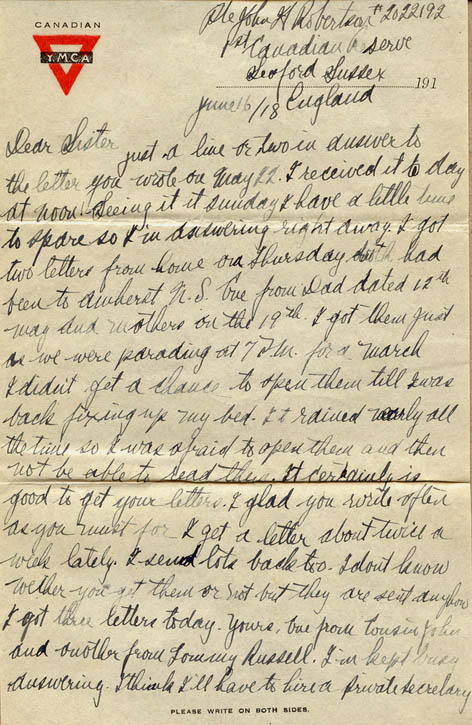 CANADIAN
Y.M.C.A
Pte John H Robertson # 2022192
1st Canadian Reserve
Seaford Sussex 191
June 16/18 England
Dear Sister
just a line or two in answer to
the letter you wrote on May 22. I received it to day
at noon. Seeing it it sunday I have a little time
to spare so I'm answering right away. I got
two letters from home on Thursday both had
been to Amherst N.S. One from Dad dated 12th
may and mothers on the 19th. I got them just
as we were parading at 7 P.M. for a march
I didn't get a chance to open them till I was
back fixing up my bed. It rained nearly all
the time so I was afraid to open them and then
not be able to read them. It certainly is
good to get your letters. I glad you write often
as you must for I get a letter about twice a
week lately. I send lots back too. I dont know
wether you get them or not but they are sent anyhow
I got three letters today. Yours, One from cousin John
and another from Tommy Russell. I'm kept busy
answering. I think I'll have to hire a private secretary
PLEASE WRITE ON BOTH SIDES.